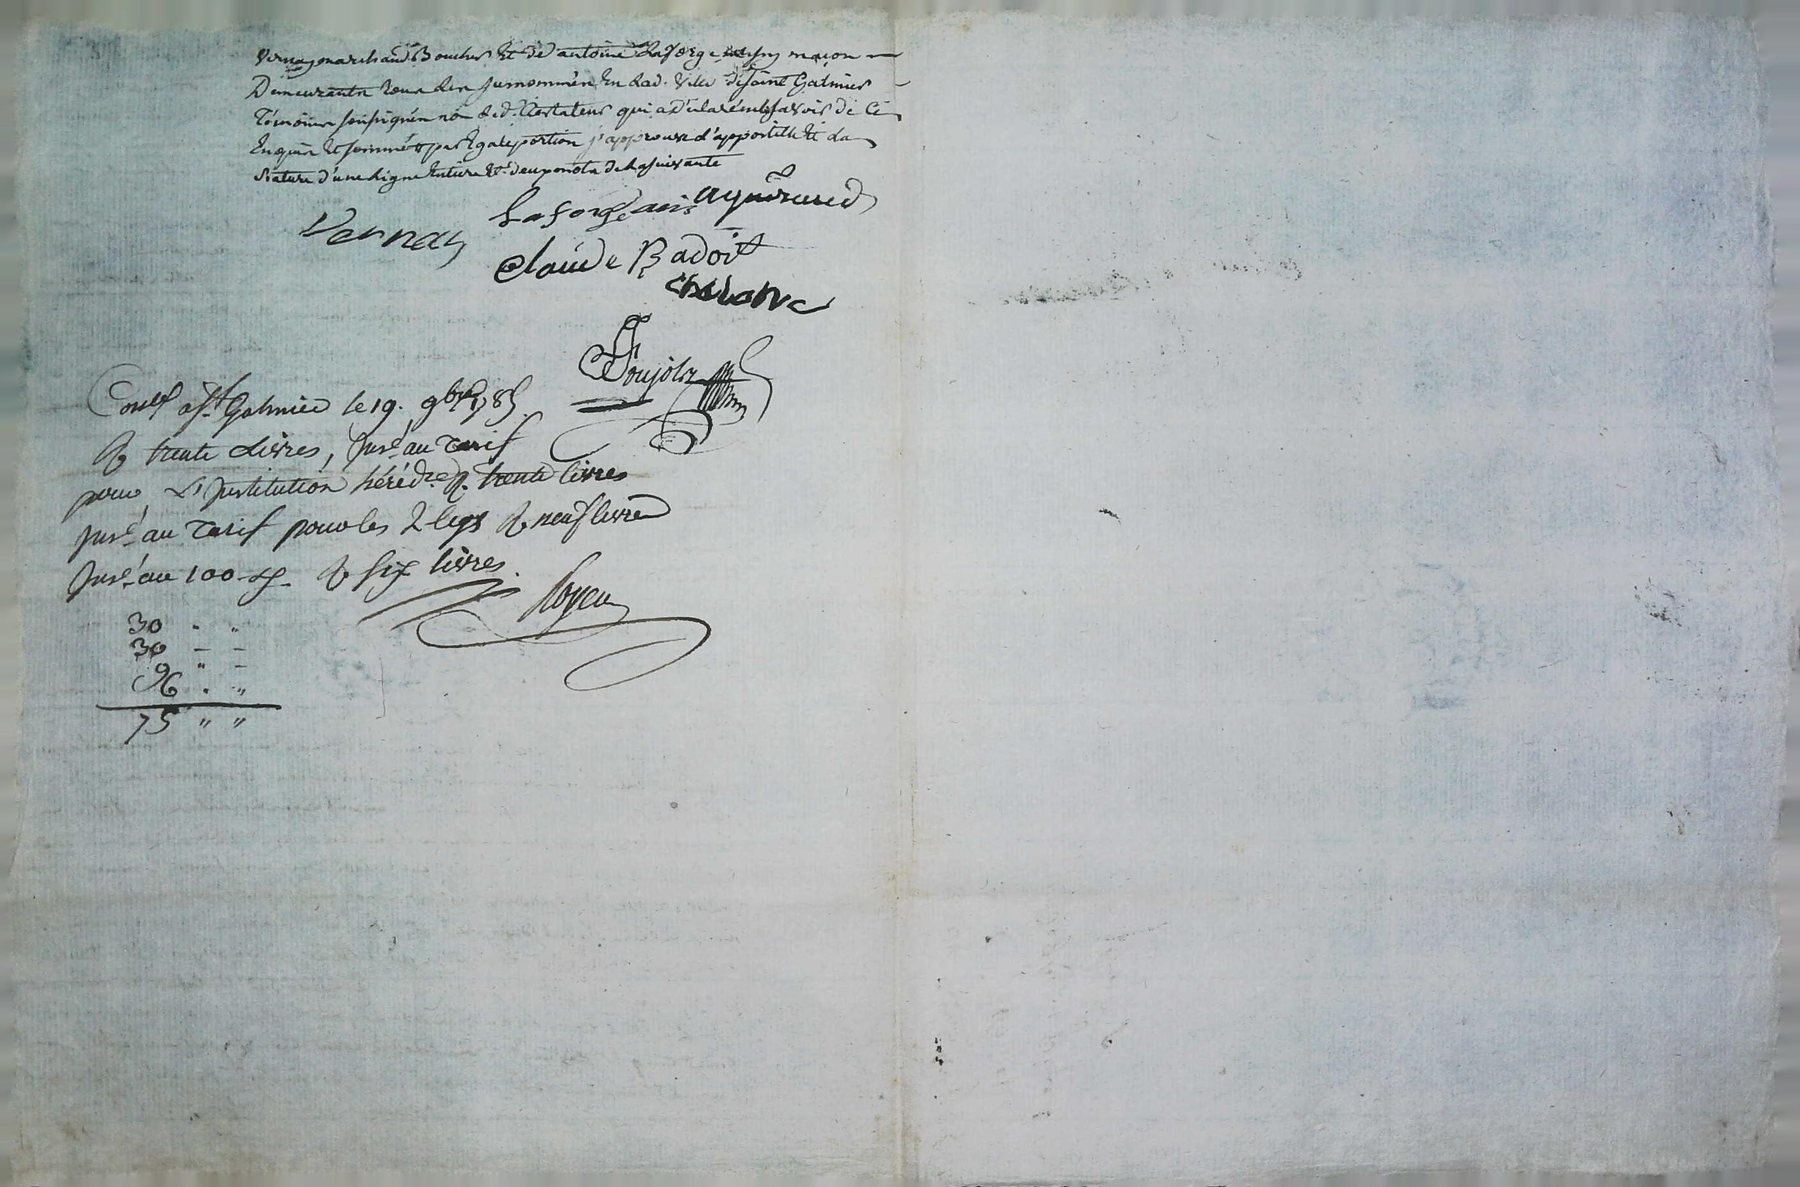 Vernay marchand Boucher Et de antoine Laforge maçon
Demeurants tous les surnommés En lad. Ville de saint Galmier
Témoins soussignés non led. Testateur qui a déclaré ne savoir de ce
Enquis Et sommé par Egale portion j'approuve l'apportille Et la
Rature d'une ligne Entiere Et de la suivante
Vernay
Laforge
Claude Badoit
Poujola
Conlé à St Galmier le 19. 9bre
R trente Livres, Jusq. au Tarif
pour L'Institution héréd.re R. trente livres
Jusq. au Tarif pour les 2 legs R neuf livres
Jusq. au 100 R six livres.
30 " "
30 - -
9 " -
6 . "
75 " "